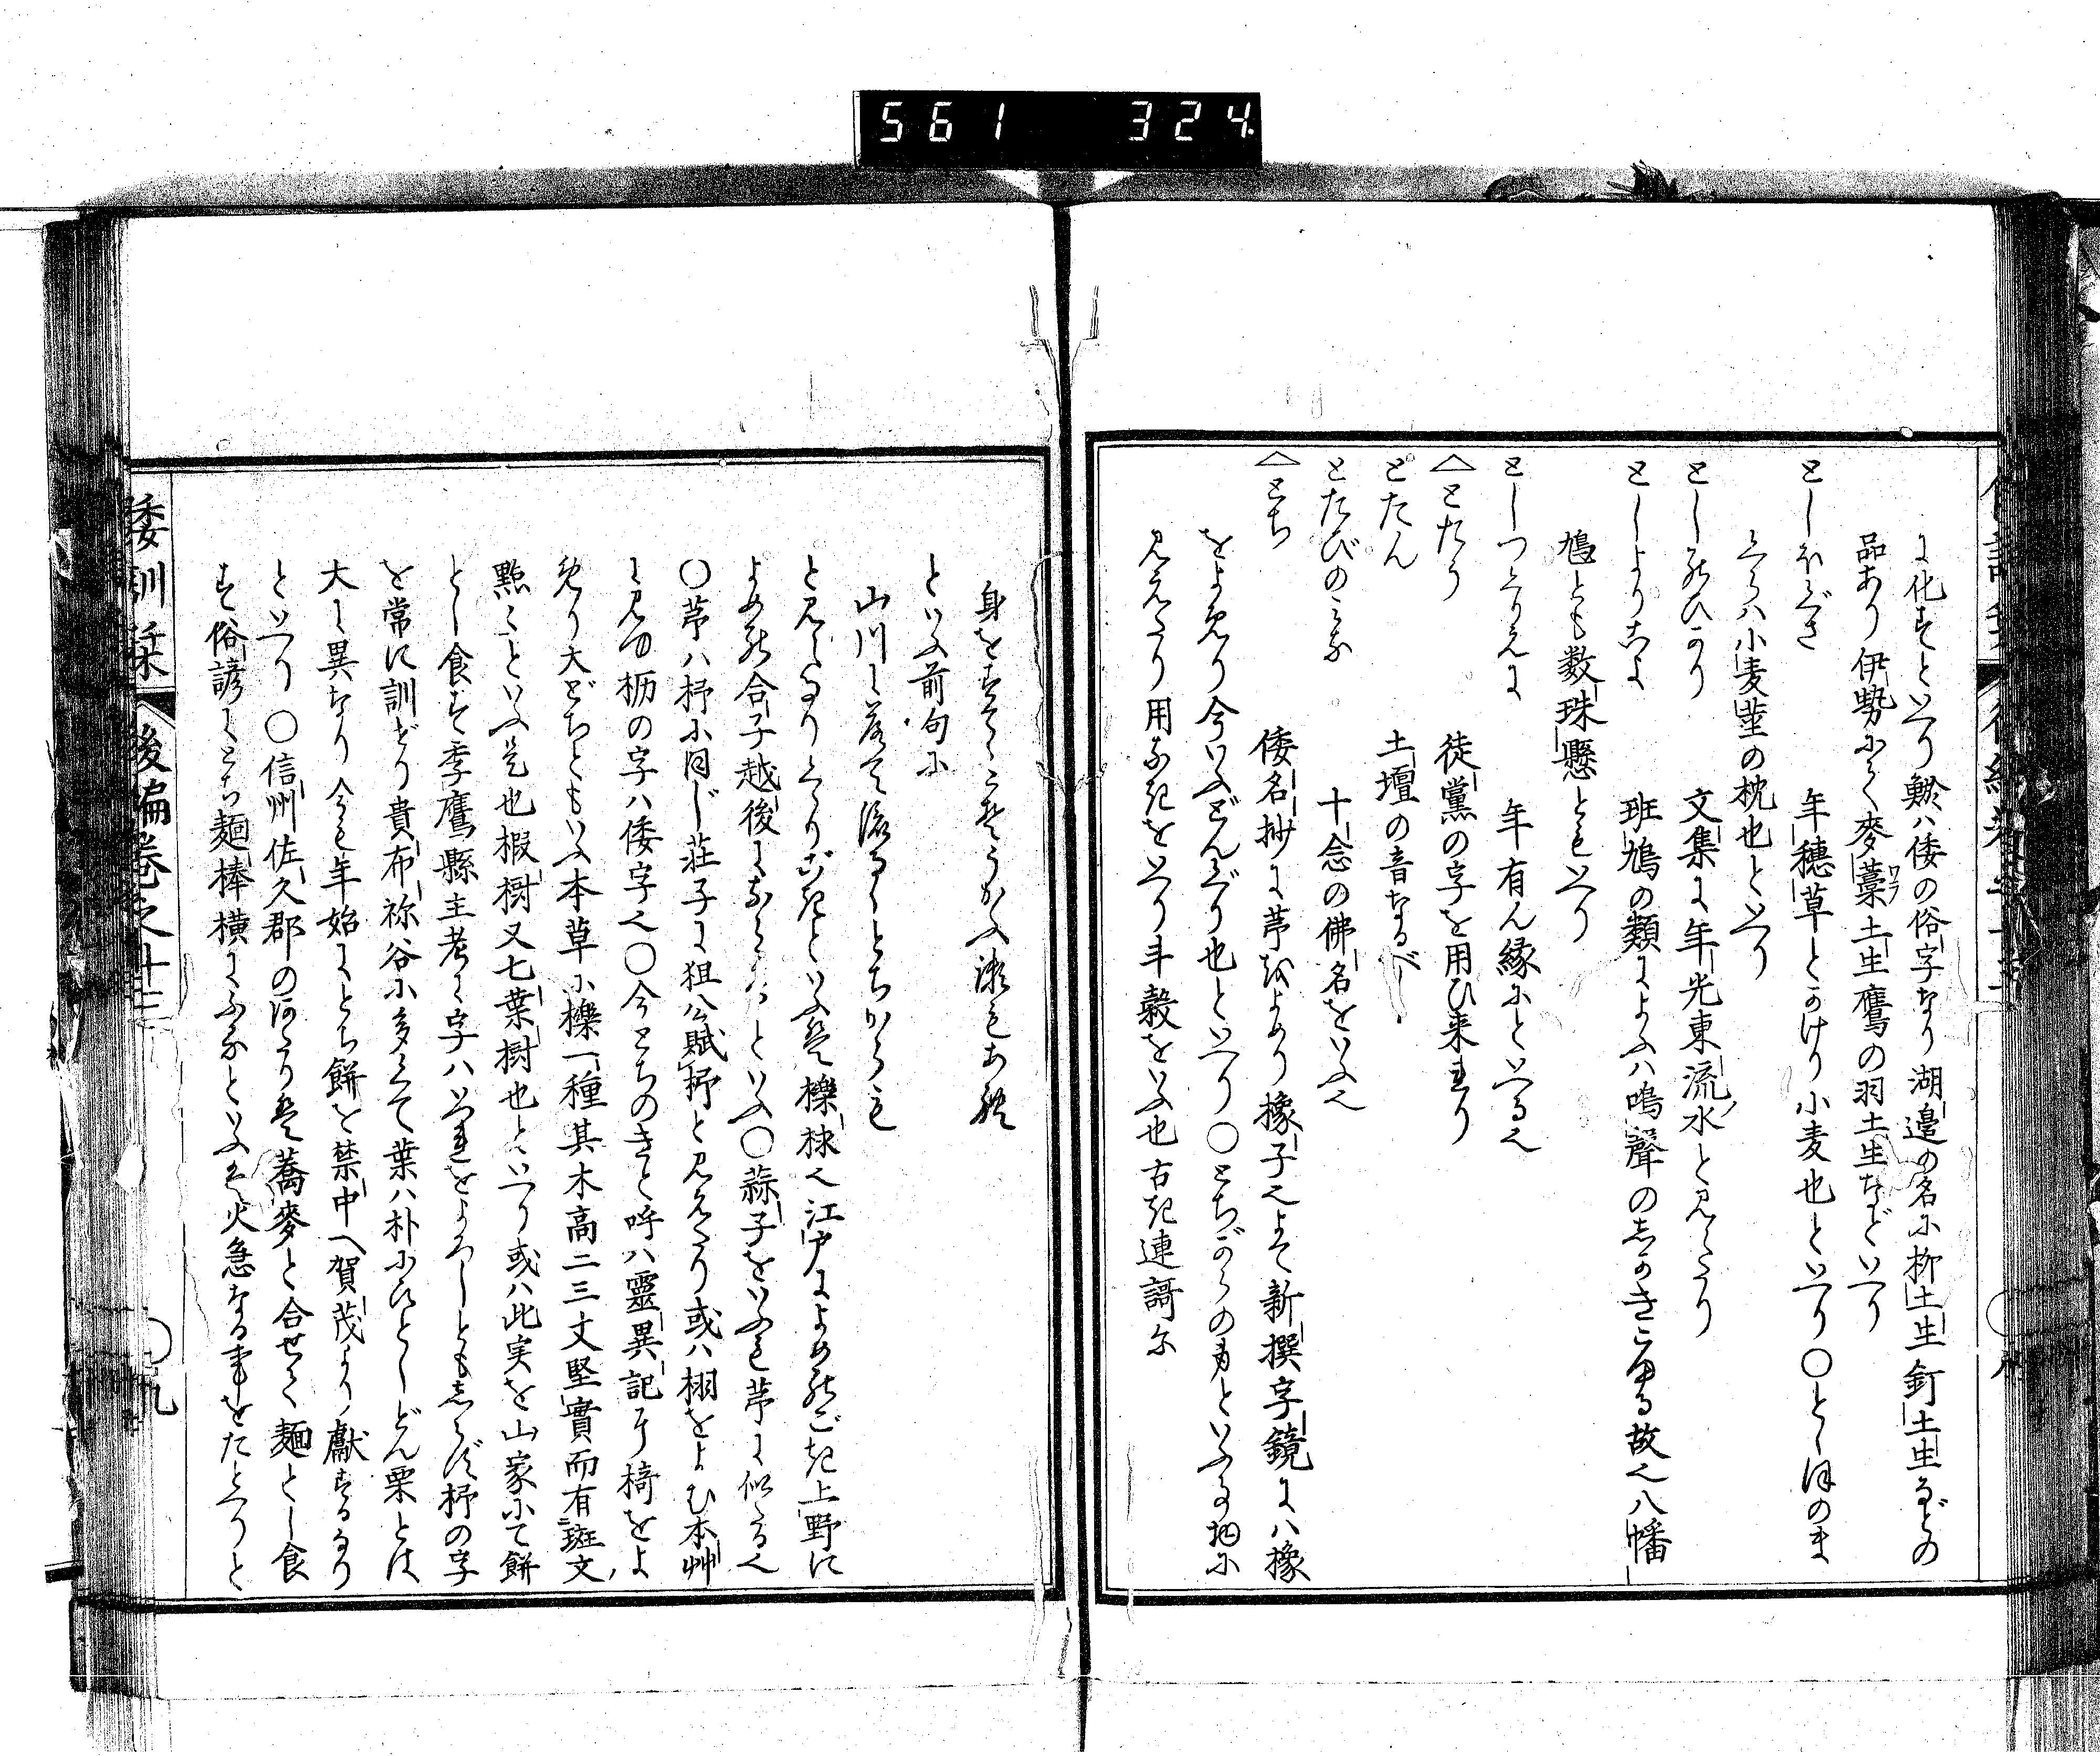 561 324
に化すといへり鰺ハ倭の俗字なり湖邉の名に柳土生釘土生などの
品あり伊勢にて麥藁土生鷹の羽土生などいへり
としほぐさ 年穗草とかけり小麦也といへり〇としほのま
くらハ小麦莖の枕也といへり
としのひかり 文集に年光東流水と見えたり
としよりこよ 班鳩の類によふハ鳴聲のしかきこゆる故也八幡
鳩とも数珠懸ともいへり
としつよりえに 年有ん縁にといへる也
△とたう 徒黨の字を用ひ来れり
とたん 土壇の音なるべし
とたびのみな 十念の佛名をいふ也
△とち 倭名抄に芧をよめり橡子也よて新撰字鏡にハ橡
をよめり今いふどんぐり也といへり〇とちがらの身といふ事物に
見えたり用なきをいへり斗穀をいふ也古き連謌に
身をすてゝこそうかふ瀬もあれ
といふ前句に
山川に落て流るゝとちからも
と見えたりくりぶきといふも櫟梂也江戸によめのごき上野に
よめの合子越後になら といふ〇蒜子をいふも芧に似たる也
〇芧ハ杼に同じ荘子に狙公賦杼と見えたり或ハ栩をよむ本艸
に見ゆ枥の字ハ倭字也〇今とちのきと呼ハ靈異記に㨳をよ
めり大どちともいふ本草に櫟一種其木高二三丈堅實而有斑文
點々といふ是也椵樹又七葉樹也といへり或ハ此実を山家にて餅
とし食す季鷹縣主考に字ハいづれをよろしともしらず杼の字
を常に訓ぜり貴布祢谷に多くて葉ハ朴にひとしどん栗とは
大に異なり今も年始にとち餅を禁中へ賀茂より獻するなり
といへり〇信州佐久郡のほとりも蕎麥と合せて麺とし食
す俗諺にとち麺棒横にふるといふも火急なる事をたとへりと
倭訓栞 後編巻之十三 〇九